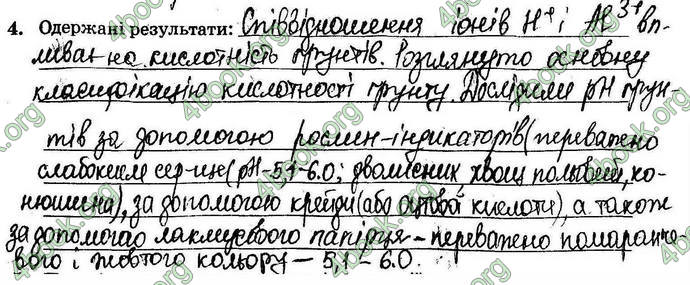 4. Одержані результати: Співвідношення іонів H⁺ і Al³⁺ вп-
ливає на кислотність ґрунтів. Розглянуто основну
класифікацію кислотності ґрунту. Дослідили pH ґрун-
тів за допомогою рослин-індикаторів (переважено
слабокисле сер-ще (pH-5,1-6.0; хвощ польовий, ко-
нюшина), за допомогою крейди (або оцтової кислоти), а також
за допомогою лакмусового папірця - переважено помаранче-
вого і жовтого кольору - 5,1 - 6.0.
4book.org